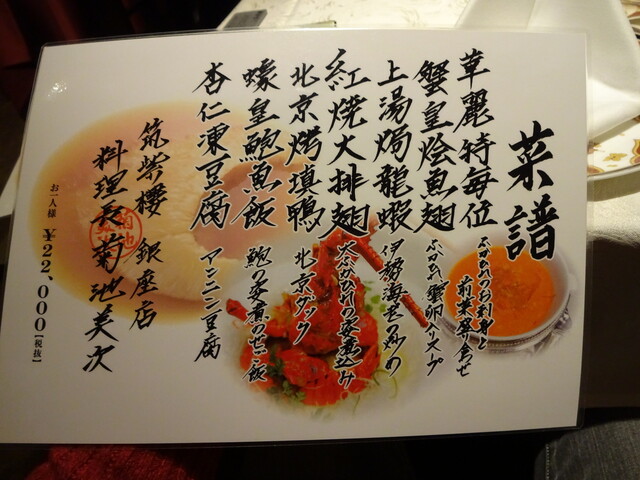 菜譜
華麗特毎位
ふかひれのお刺身と
前菜盛合せ
蟹皇燴魚翅
ふかひれ蟹卵入りスープ
上湯焗龍蝦
伊勢海老の炒め
紅焼大排翅
大ふかひれの姿煮込み
北京烤填鴨
北京ダック
蠔皇鮑魚飯
鮑の姿煮のせご飯
杏仁凍豆腐
アンニン豆腐
筑紫樓 銀座店
料理長 菊池美次
お一人様 ￥22,000【税抜】